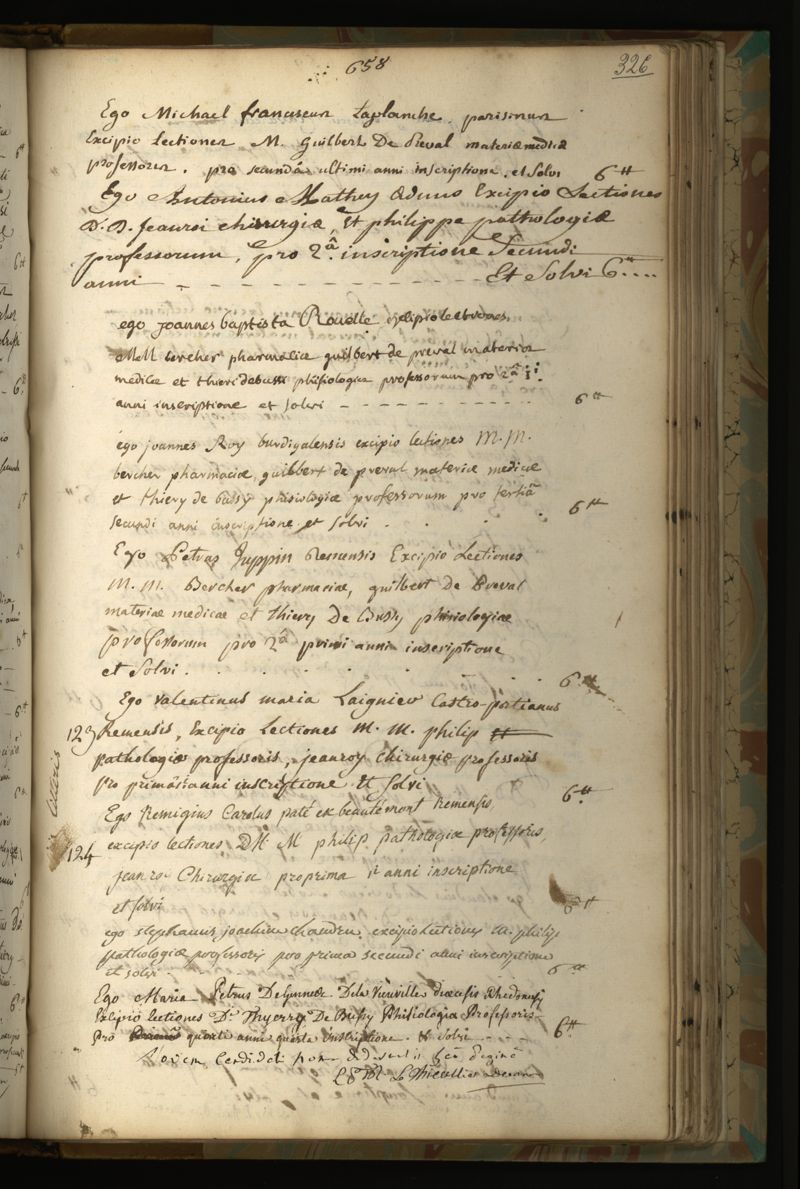 658
326
Ego Michael franciscus Laplanche, parisinus
Excipio Lectiones M. Guilbert De Préval materiæ medicæ
professoris. pro secundâ ultimi anni inscriptione. et Solvi 6tt
Ego Antonius Mathey Æduus Excipio Lectiones
D. D. Jeanroi chirurgiæ, Et philippe pathologiæ
professorum, pro 2.â inscriptione Secundi
anni - - - - - - - - - - - Et Solvi 6tt....
ego joannes baptista Rouelle excipio lectiones
MM bercher pharmaciæ guilbert de preval materiæ
medicæ et thieri debussi phisiologiæ professorum pro 2â 1i
anni inscriptione et solvi - - - - - - - - - - 6tt
ego joannes Roy burdigalensis excipio lectiones M. M.
bercher pharmaciæ, guilbert de preval materiæ medicæ
et thiery de bussy phisiologiæ professorum pro tertiâ
secundi anni inscriptione et solvi . . . . 6tt
Ego Petrus Juppin Remensis Excipio Lectiones
M. M. Bercher pharmaciae, guilbert De Preval
materiae medicae et thiery De Bussy phisiologiae
professorum pro 2â primi anni inscriptione
et Solvi . . . . . . . 6tt
Ego Valentinus maria Laignier Castro-portianus
123 Remensis, Excipio Lectiones M. M. philip
pathologiæ professoris, jeanroy chirurgiæ professoris
pro primâ 1i anni inscriptione Et Solvi 6tt
litteris
Ego Remigius Carolus paté ex beautémont Remensis
124 excipio lectiones DD. M philip pathologiæ professoris,
jeanroi Chirurgiæ pro prima 1i anni inscriptione
et solvi 6tt
ego stephanus joachim chaudru excipio lectiones M. philip
pathologiæ professoris pro prima secundi anni inscriptione
et solvi - - - 6tt
Ego Maria Petrus De la Vieuville diœcesis Rhedonensis
Excipio Lectiones D. Thyerry De Bussy Phisiologia Professoris
Pro quarti anni quarta Inscriptione. & solvi 6tt
Novem Candidati paginâ
Le Thieullier decanus